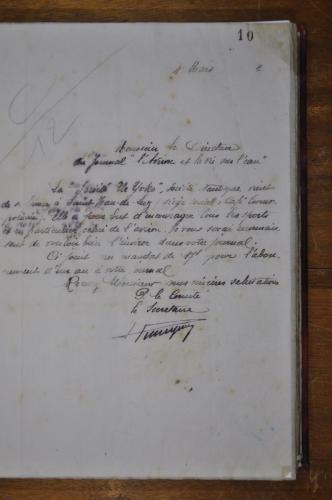 10
4 Mars 2
12
Monsieur le Directeur
du Journal "l'Aviron et la Vie sur l'eau"
La "Société Ur Yoko", Société nautique vient
de se former à Saint Jean de Luz (siège social: Café Consor-
polérien). Elle a pour but d'encourager tous les sports
et en particulier celui de l'aviron. Je vous serai reconnais-
sant de vouloir bien l'insérer dans votre journal.
Ci joint un mandat de pour l'abon-
nement d'un an à votre journal
Recevez Monsieur mes sincères salutations
P. le Comité
le Secrétaire